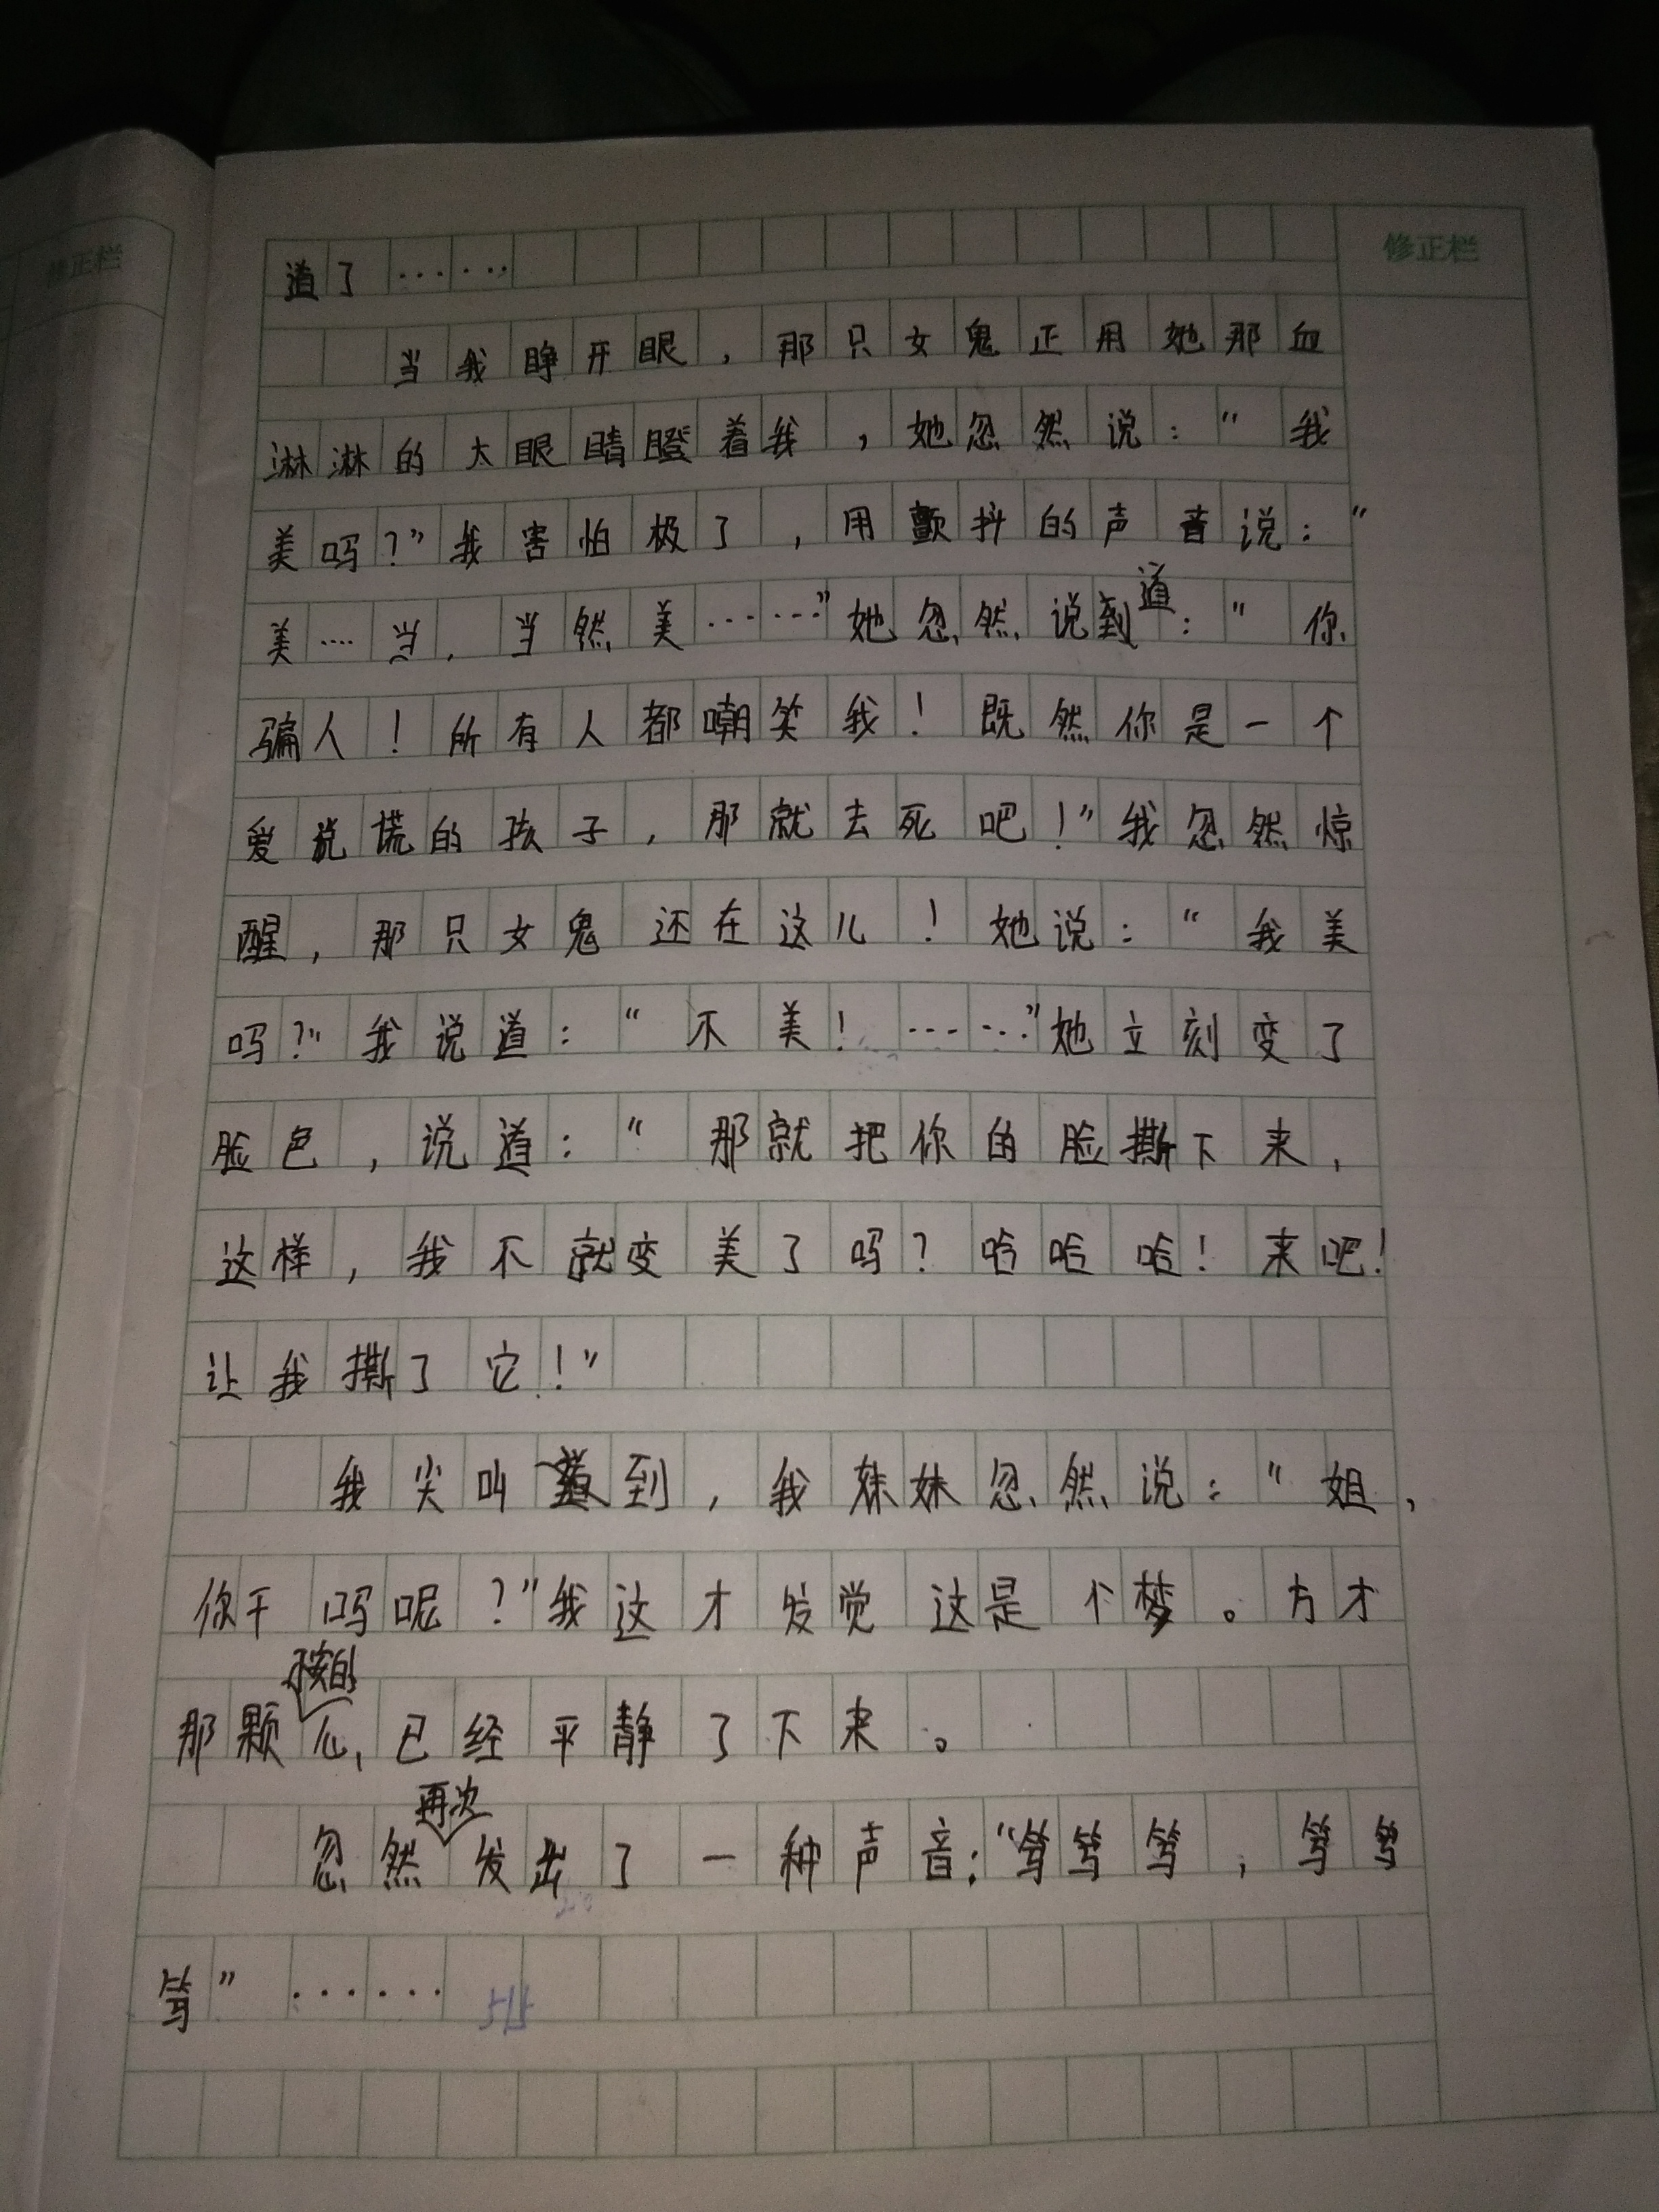 修正栏
修正栏
道了……
当我睁开眼，那只女鬼正用她那血
淋淋的大眼睛瞪着我，她忽然说：“我
美吗？”我害怕极了，用颤抖的声音说：“
美……当，当然美……”她忽然说道：“你
骗人！所有人都嘲笑我！既然你是一个
爱说谎的孩子，那就去死吧！”我忽然惊
醒，那只女鬼还在这儿！她说：“我美
吗？”我说道：“不美！……”她立刻变了
脸色，说道：“那就把你的脸撕下来，
这样，我不就变美了吗？哈哈哈！来吧！
让我撕了它！”
我尖叫到，我妹妹忽然说：“姐，
你干吗呢？”我这才发觉这是个梦。方才
那颗不安的心已经平静了下来。
忽然再次发出了一种声音：“笃笃笃，笃笃
笃”……